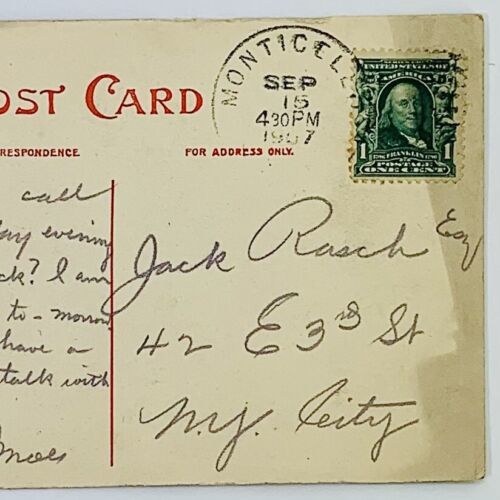 OST CARD
RRESPONDENCE.
FOR ADDRESS ONLY.
MONTICELLO
SEP
15
430PM
1907
SERIES 1902
UNITED STATES OF
AMERICA
1 FRANKLIN 1
ONE CENT
call
ay evening
ck? I am
to-morrow
have a
talk with
Jack Rasch Esq
42 E 3rd St
N.Y. City